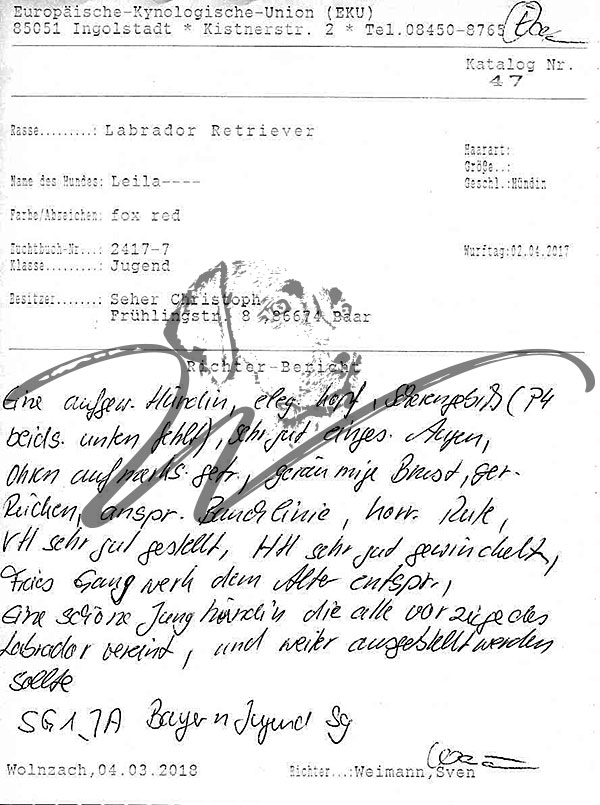 Europäische-Kynologische-Union (EKU)
85051 Ingolstadt * Kistnerstr. 2 * Tel.08450-8765
Katalog Nr.
47
Rasse.........: Labrador Retriever
Haarart:
Größe..:
Name des Hundes: Leila----
Geschl.:Hündin
Farbe/Abzeichen: fox red
Zuchtbuch-Nr...: 2417-7
Wurftag:02.04.2017
Klasse.........: Jugend
Besitzer.......: Seher Christoph
Frühlingstr. 8 ,86674 Baar
Richter-Bericht
Eine aufgew. Hündin, eleg Kopf, Scherengebiß (P4
beids. unten fehlt), sehr gut einges. Augen,
Ohren aufmerks. getr., geräumige Brust, ger.
Rücken, anspr. Bauchlinie, korr. Rute,
VH sehr gut gestellt, HH sehr gut gewinkelt,
Freies Gangwerk dem Alter entspr.,
Eine schöne Junghündin die alle vorzüge des
Labrador vereint, und weiter ausgestellt werden
sollte
SG1 JA Bayern Jugend Sg
Wolnzach,04.03.2018
Richter...:Weimann,Sven